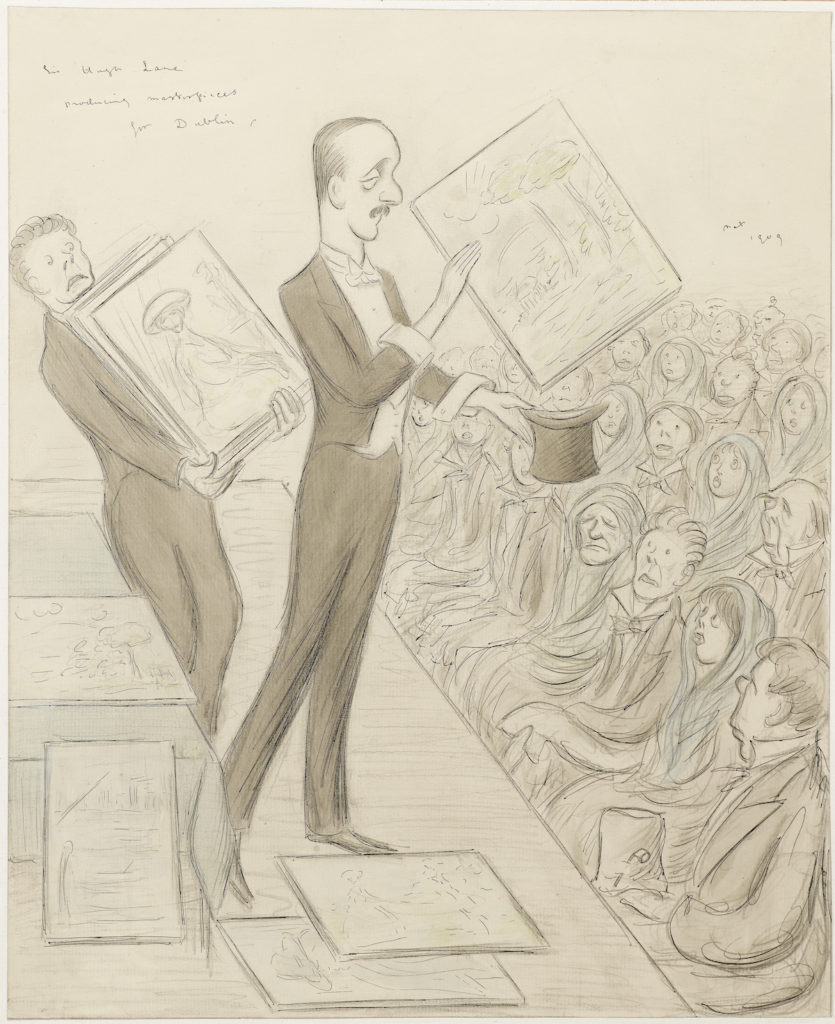 Sir Hugh Lane
producing masterpieces
for Dublin,
max
1909